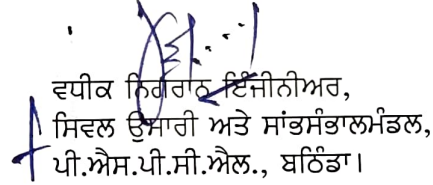 ਵਧੀਕ ਨਿਗਰਾਨ ਇੰਜੀਨੀਅਰ,
ਸਿਵਲ ਉਸਾਰੀ ਅਤੇ ਸਾਂਭਸੰਭਾਲਮੰਡਲ,
ਪੀ.ਐਸ.ਪੀ.ਸੀ.ਐਲ., ਬਠਿੰਡਾ।